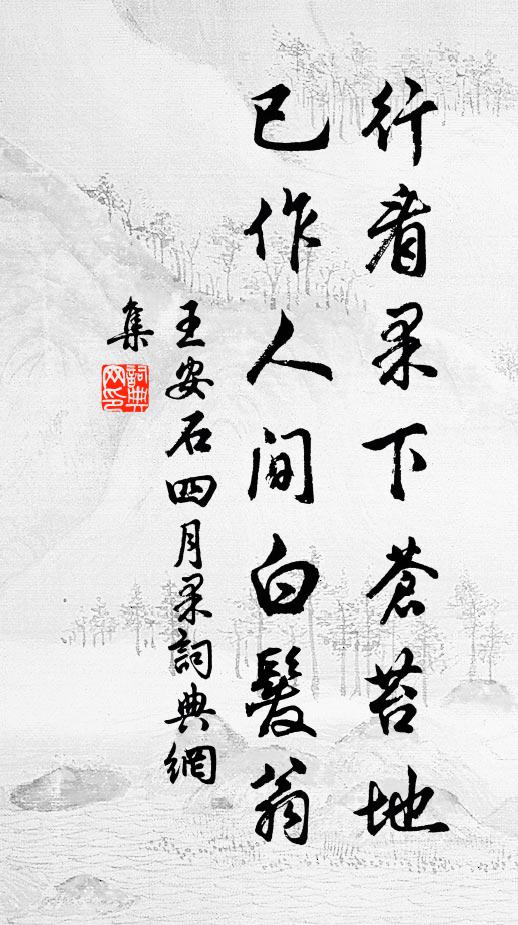 行看果下蒼苔地
已作人間白髮翁
王安石四月果詞典網
集
詞典網印